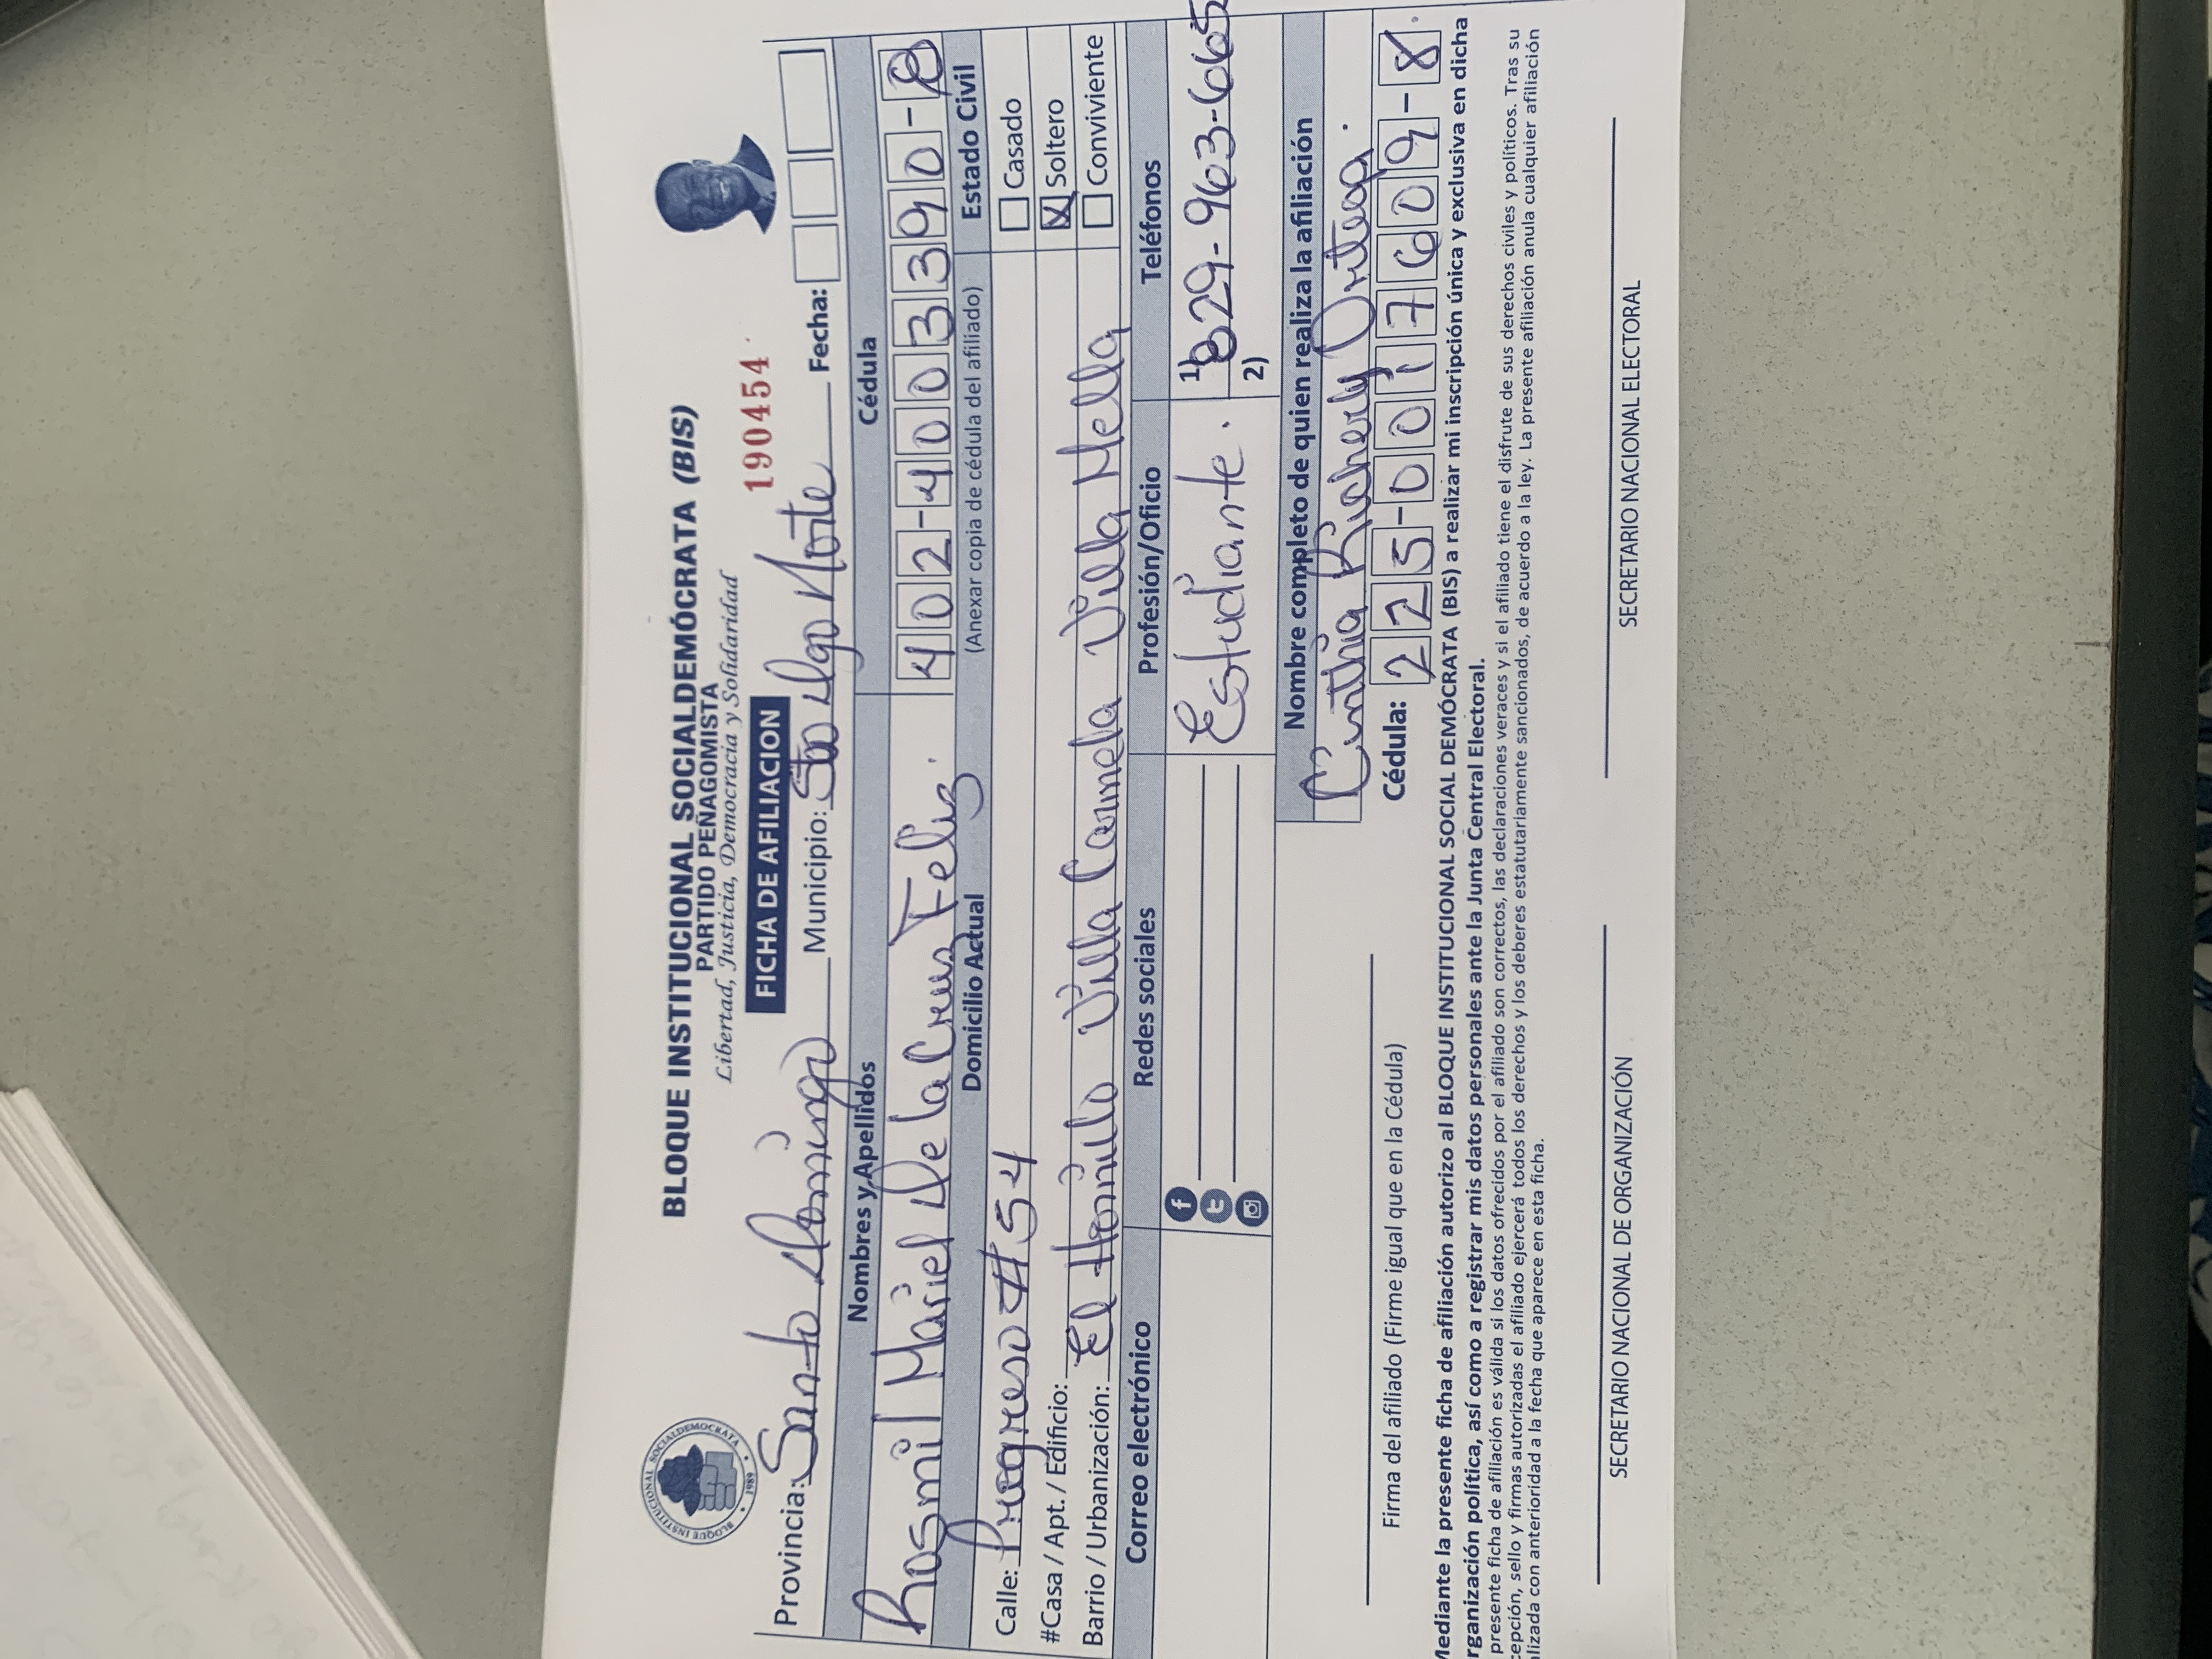 BLOQUE INSTITUCIONAL SOCIALDEMÓCRATA (BIS)
PARTIDO PEÑAGOMISTA
Libertad, Justicia, Democracia y Solidaridad
BLOQUE INSTITUCIONAL SOCIALDEMOCRATA
1989
FICHA DE AFILIACION
190454
Provincia: Santo Domingo Municipio: Sto Dgo Norte Fecha:
Nombres y Apellidos Cédula
Rosmil Mariel De la Cruz Feliz. 402-4003390-8
Domicilio Actual (Anexar copia de cédula del afiliado) Estado Civil
Calle: Progreso #54 Casado
#Casa / Apt. / Edificio: Soltero
Barrio / Urbanización: El Hornillo Villa Carmela Villa Mella Conviviente
Correo electrónico Redes sociales Profesión/Oficio Teléfonos
Estudiante. 1) 829-963-6665
2)
Nombre completo de quien realiza la afiliación
Cinthia Ortega.
Cédula: 225-0017609-8
Firma del afiliado (Firme igual que en la Cédula)
Mediante la presente ficha de afiliación autorizo al BLOQUE INSTITUCIONAL SOCIAL DEMÓCRATA (BIS) a realizar mi inscripción única y exclusiva en dicha
rganización política, así como a registrar mis datos personales ante la Junta Central Electoral.
presente ficha de afiliación es válida si los datos ofrecidos por el afiliado son correctos, las declaraciones veraces y si el afiliado tiene el disfrute de sus derechos civiles y políticos. Tras su
cepción, sello y firmas autorizadas el afiliado ejercerá todos los derechos y los deberes estatutariamente sancionados, de acuerdo a la ley. La presente afiliación anula cualquier afiliación
lizada con anterioridad a la fecha que aparece en esta ficha.
SECRETARIO NACIONAL DE ORGANIZACIÓN SECRETARIO NACIONAL ELECTORAL